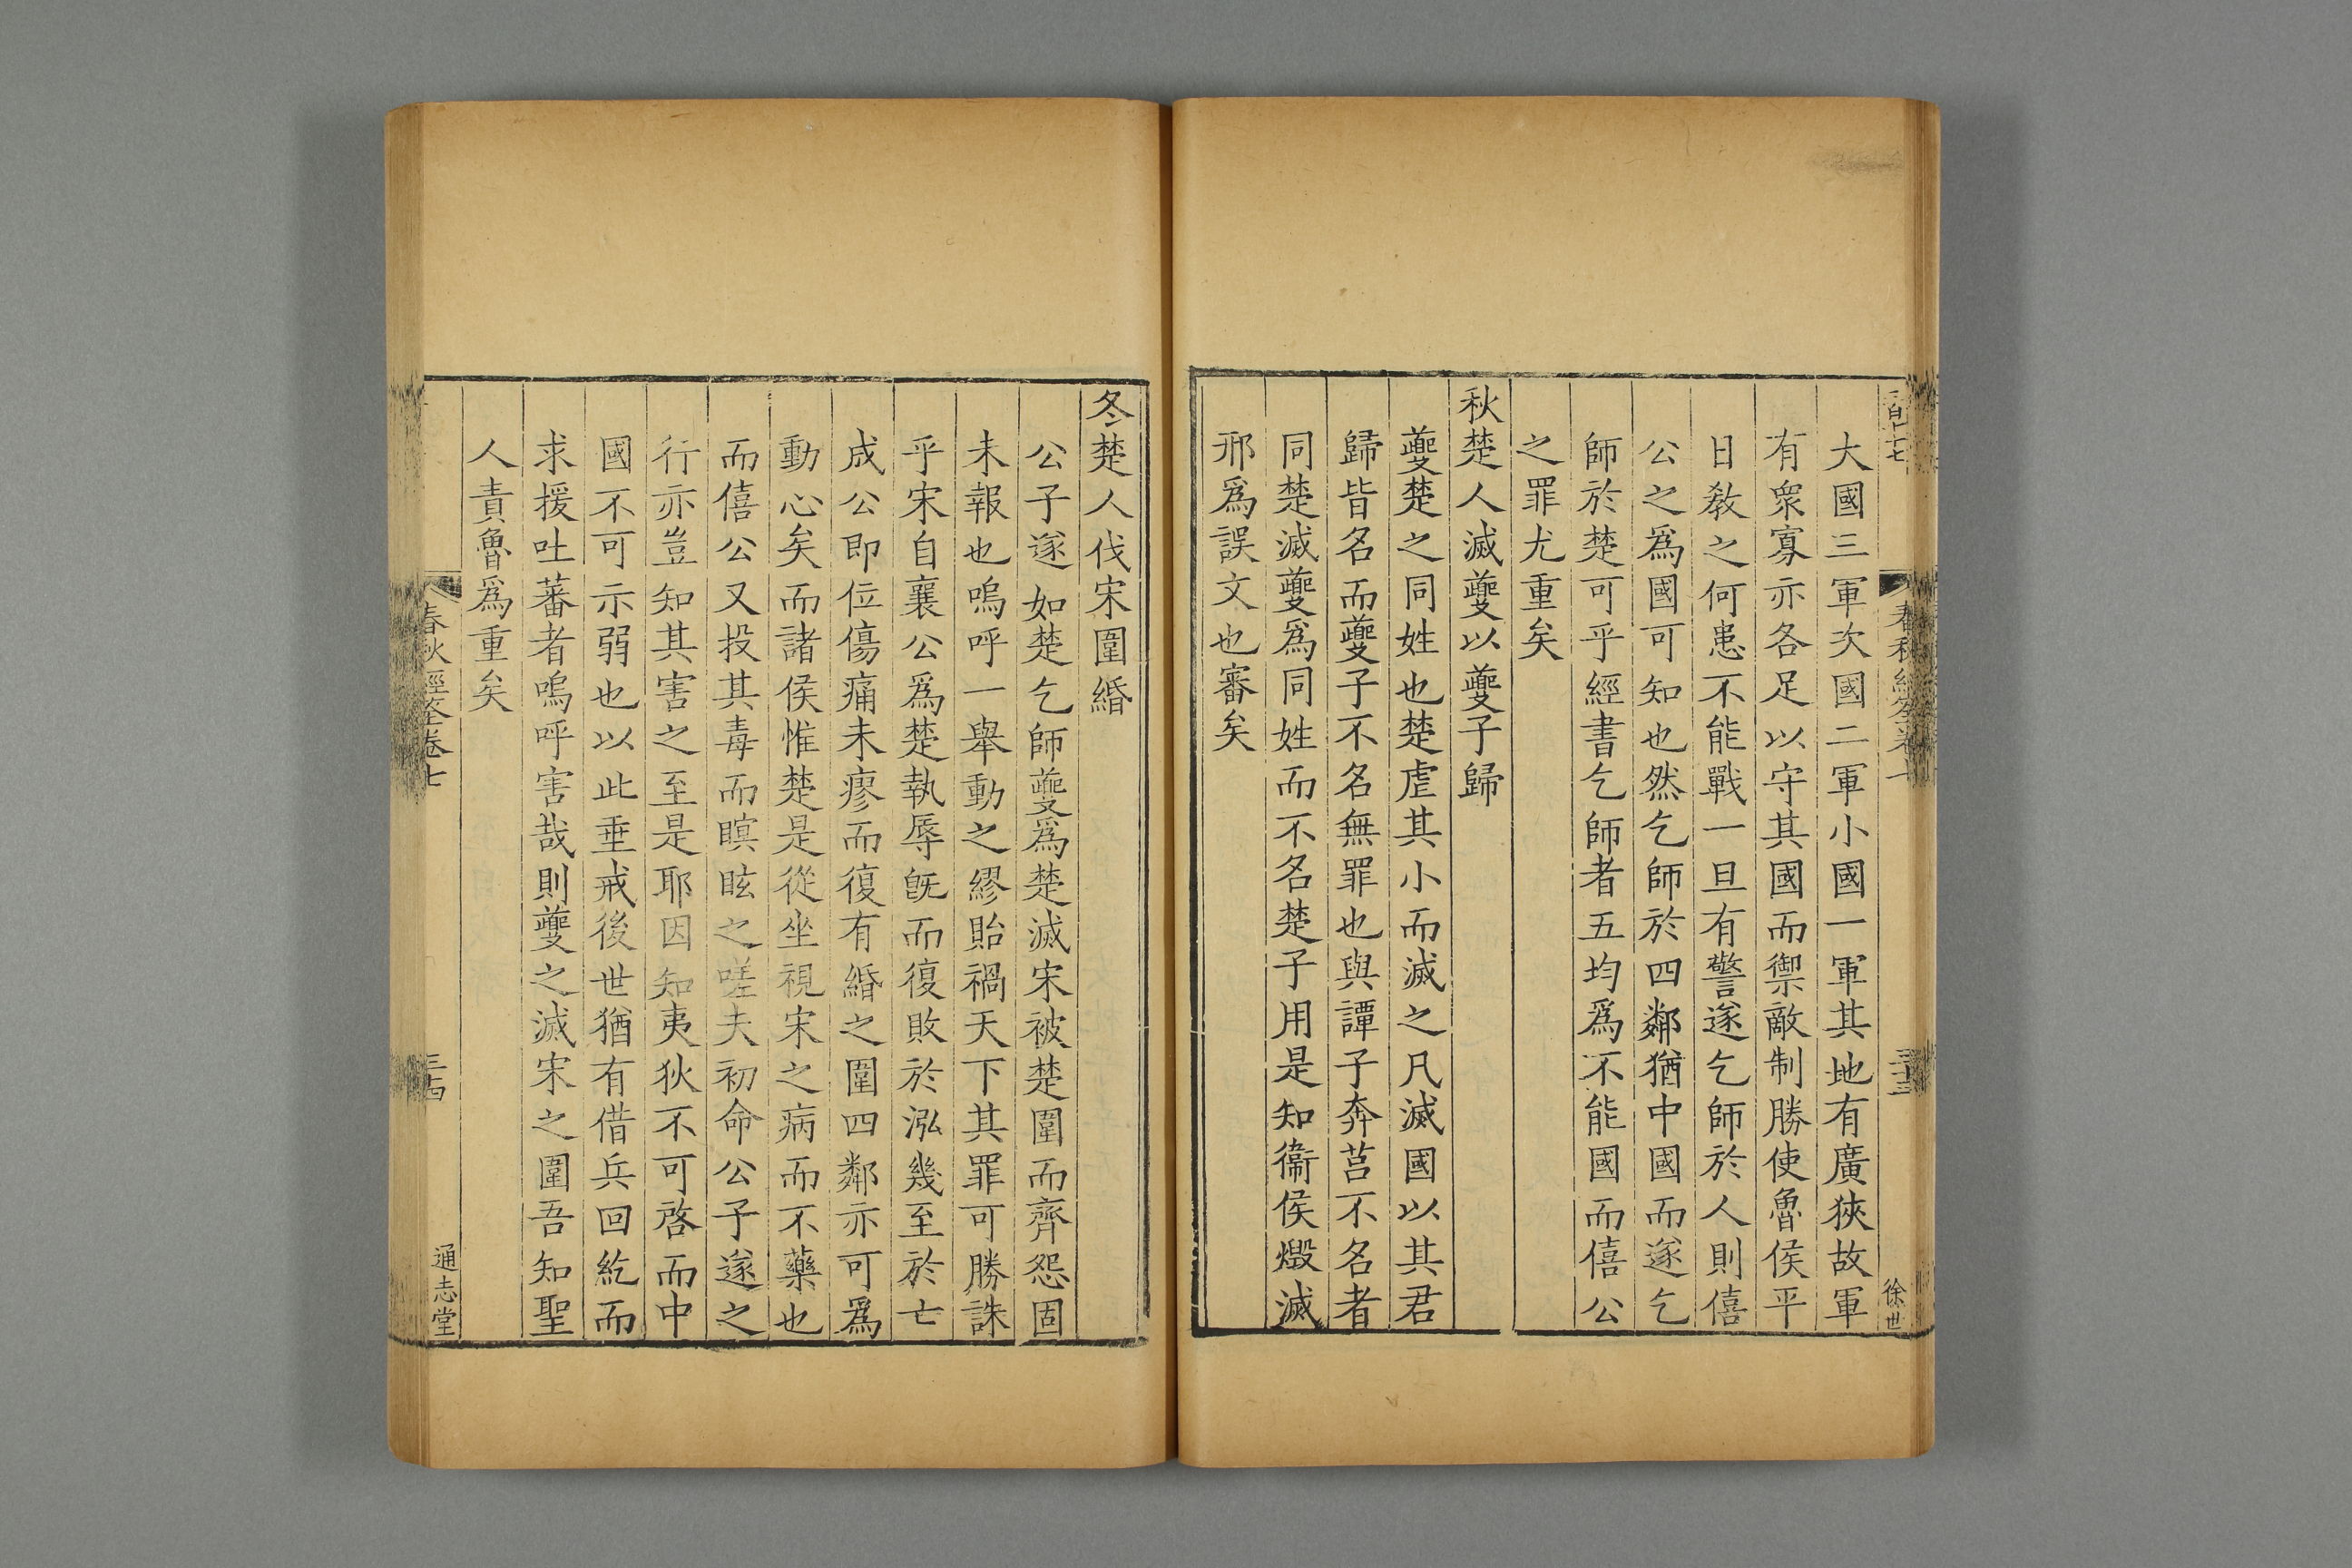 大國三軍次國二軍小國一軍其地有廣狹故軍
有衆寡亦各足以守其國而禦敵制勝使魯侯平
日敎之何患不能戰一旦有警遂乞師於人則僖
公之爲國可知也然乞師於四鄰猶中國而遂乞
師於楚可乎經書乞師者五均爲不能國而僖公
之罪尤重矣
秋楚人滅夔以夔子歸
夔楚之同姓也楚虐其小而滅之凡滅國以其君
歸皆名而夔子不名無罪也與譚子奔莒不名者
同楚滅夔爲同姓而不名楚子用是知衞侯燬滅
邢爲誤文也審矣
冬楚人伐宋圍緡
公子遂如楚乞師夔爲楚滅宋被楚圍而齊怨固
未報也嗚呼一舉動之繆貽禍天下其罪可勝誅
乎宋自襄公爲楚執辱旣而復敗於泓幾至於亡
成公即位傷痛未瘳而復有緡之圍四鄰亦可爲
動心矣而諸侯惟楚是從坐視宋之病而不藥也
而僖公又投其毒而瞑眩之嗟夫初命公子遂之
行亦豈知其害之至是耶因知夷狄不可啓而中
國不可示弱也以此垂戒後世猶有借兵回紇而
求援吐蕃者嗚呼害哉則夔之滅宋之圍吾知聖
人責魯爲重矣
春秋經筌卷七
通志堂
徐世